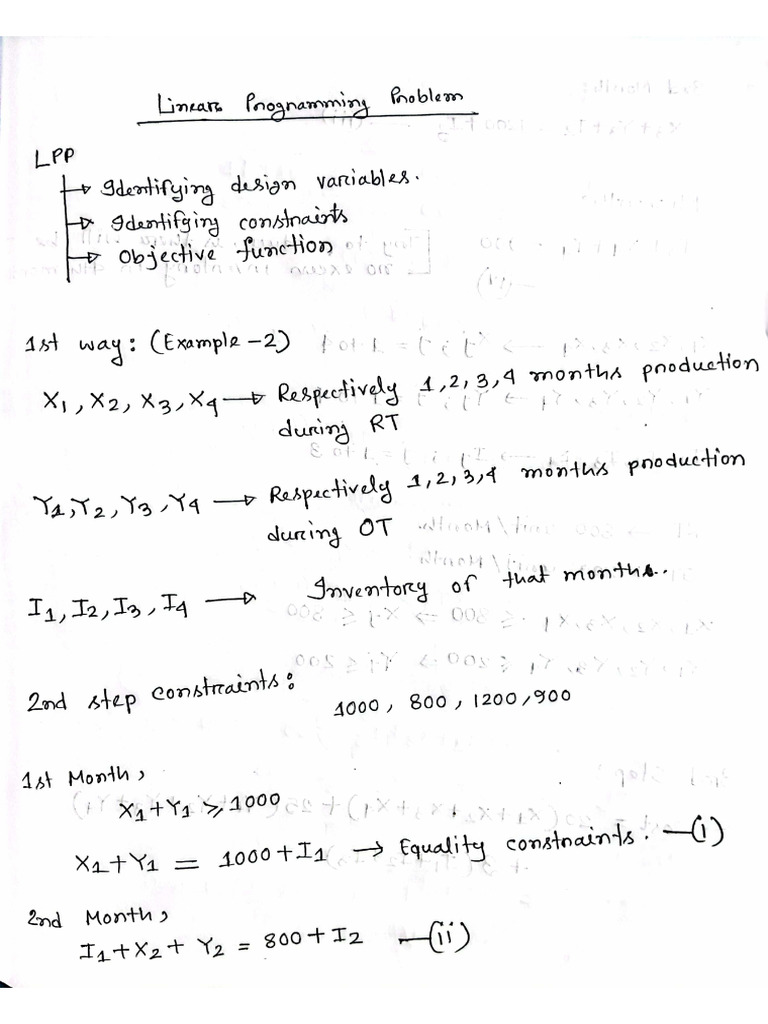 Linear Programming Problem
LPP
→ Identifying design variables.
→ Identifging constraints
→ Objective function
1st way: (Example-2)
X1, X2, X3, X4 → Respectively 1,2,3,4 months production
during RT
Y1, Y2, Y3, Y4 → Respectively 1,2,3,4 months production
during OT
I1, I2, I3, I4 → Inventory of that months.
2nd step constraints: 1000, 800, 1200, 900
1st Month,
X1+Y1 ⩾ 1000
X1+Y1 = 1000+I1 → Equality constraints. —(i)
2nd Month,
I1+X2+Y2 = 800+I2 —(ii)